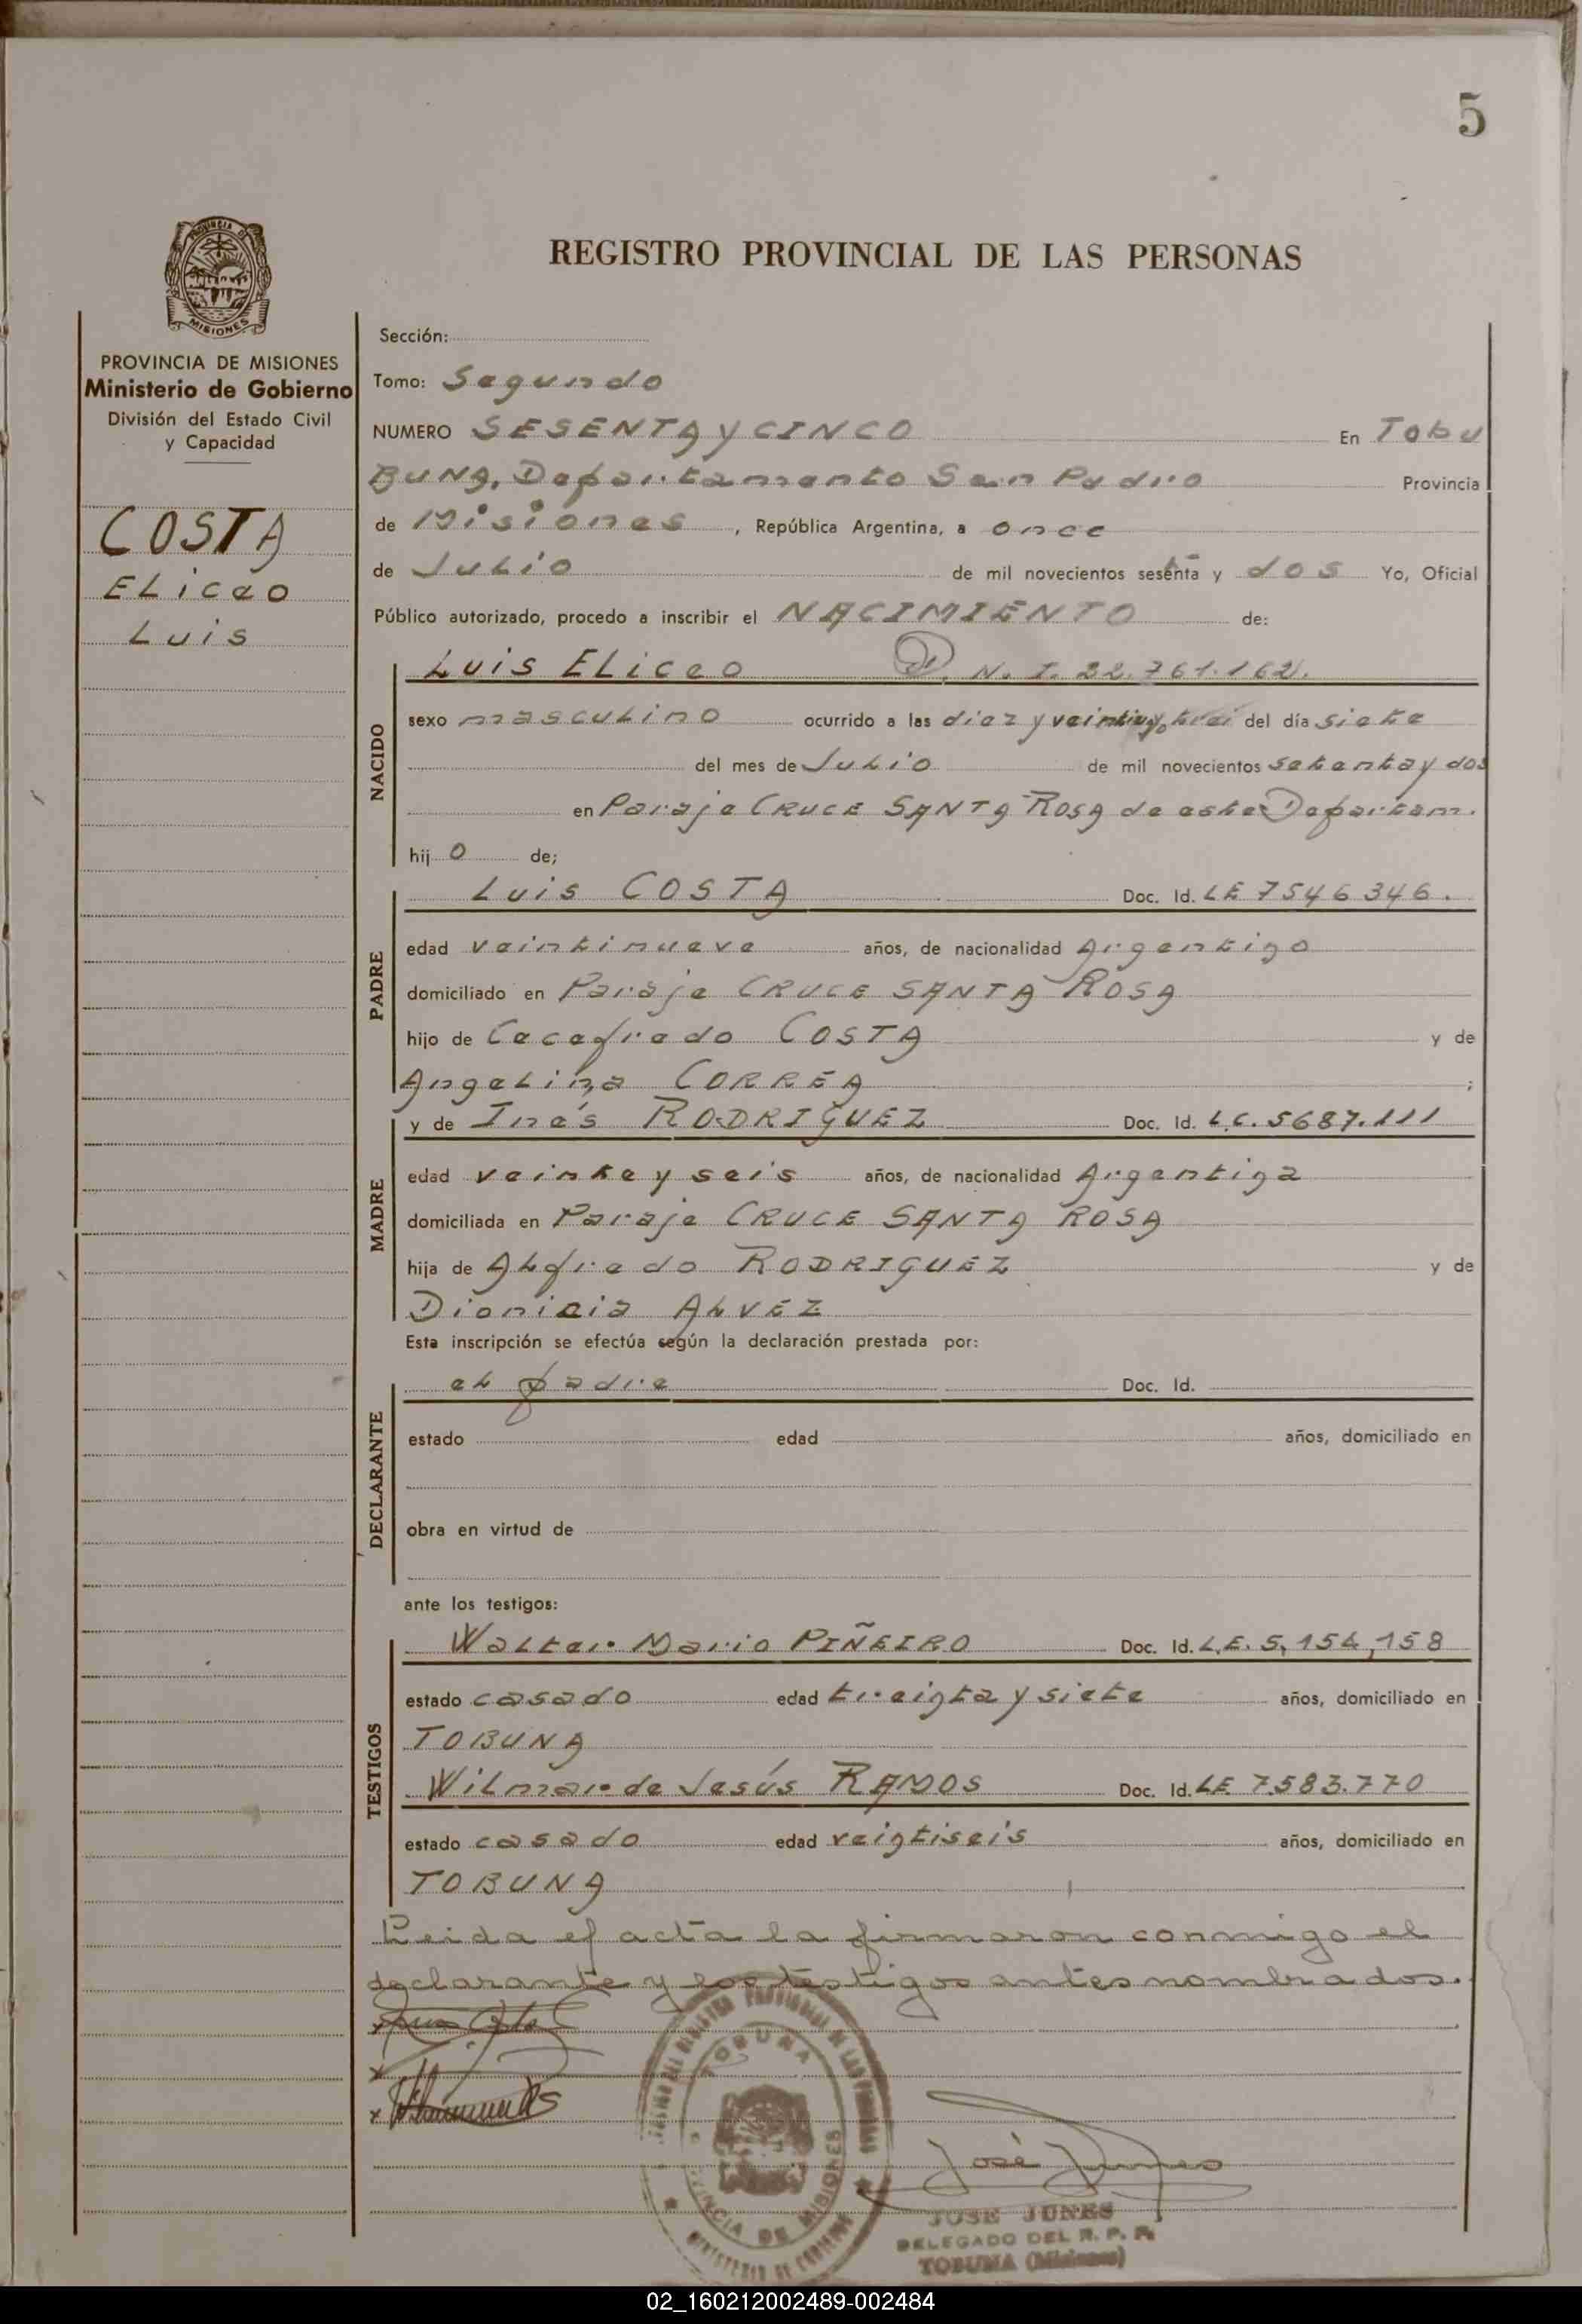 5
REGISTRO PROVINCIAL DE LAS PERSONAS
PROVINCIA DE MISIONES
Ministerio de Gobierno
División del Estado Civil
y Capacidad
COSTA
ELiceo
Luis
Sección:
Tomo: Segundo
NUMERO SESENTA y CINCO En Tobu
BUNA, Departamento San Pedro Provincia
de Misiones, República Argentina, a once
de Julio de mil novecientos sesenta y dos Yo, Oficial
Público autorizado, procedo a inscribir el NACIMIENTO de:
NACIDO
Luis ELiceo D. N. I. 22.761.162.
sexo masculino ocurrido a las diez y del día siete
del mes de Julio de mil novecientos setenta y dos
en Paraje CRUCE SANTA ROSA de este Departam.
hij o de;
PADRE
Luis COSTA Doc. Id. LE 7546346.
edad veintinueve años, de nacionalidad Argentino
domiciliado en Paraje CRUCE SANTA ROSA
hijo de COSTA y de
Angelina CORREA ;
MADRE
y de Inés RODRIGUEZ Doc. Id. L.C. 5687.111
edad veinte y seis años, de nacionalidad Argentina
domiciliada en Paraje CRUCE SANTA ROSA
hija de Alfredo RODRIGUEZ y de
Dionicia ALVEZ
Esta inscripción se efectúa según la declaración prestada por:
DECLARANTE
el padre Doc. Id.
estado edad años, domiciliado en
obra en virtud de
ante los testigos:
TESTIGOS
Walter Mario PIÑEIRO Doc. Id. L.E. 5,154,158
estado casado edad treinta y siete años, domiciliado en
TOBUNA
Wilmar de Jesús RAMOS Doc. Id. LE 7.583.770
estado casado edad veintiseis años, domiciliado en
TOBUNA
Leida el acta la firmaron conmigo el
declarante y los testigos antes nombrados.
TOBUNA
PROVINCIA DE MISIONES
José Junes
JOSE JUNES
DELEGADO DEL R. P. P.
TOBUNA (Misiones)
02_160212002489-002484